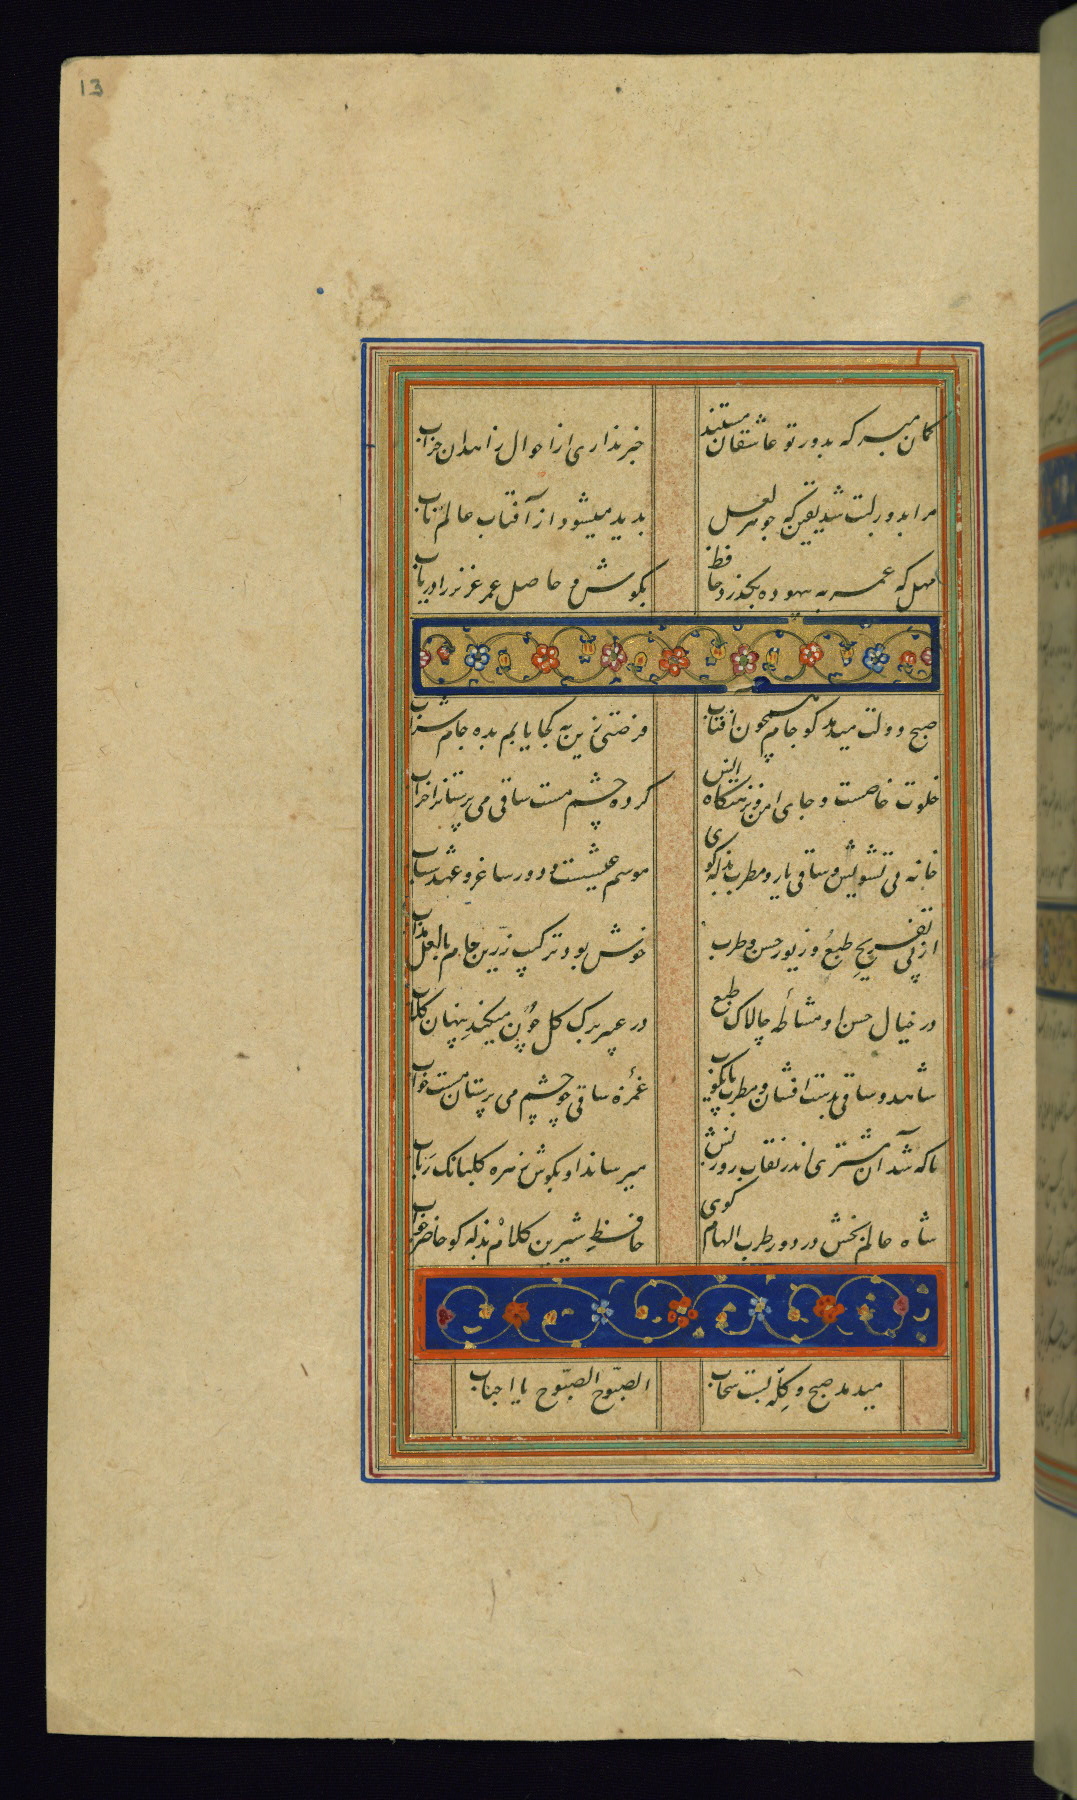 13
کمان مبر که بدور تو عاشقان مستند خبر نداری از احوال زاهدان خراب
مرا بدور لبت شد یقین که جوهر لعل بدید میشود از آفتاب عالم تاب
مهل که عمر به بیهوده بکذرد حافظ بکوش و حاصل عمر عزیز را دریاب
صبح دولت میدمد کو جام همچون آفتاب فرصتی زین به کجا یابم بده جام شراب
خلوت خاصست و جای امن و نزهتکاه انس کرده چشم مست ساقی می پرستانرا خراب
خانه بی تشویش و ساقی یار و مطرب بذله کوی موسم عیشست و دور ساغر و عهد شباب
از پی تفریح طبع و زیور حسن و طرب خوش بود ترکیب زرین جام با لعل مذاب
در خیال حسن او مشاطه چالاک طبع در عبیر برک کل خون میکند پنهان کلاب
شاهد و ساقی بدست افشان و مطرب پایکوب غمزه ساقی چو چشم می پرستان مست خواب
تا که شد آن مشتری اندر نقاب روز نش میرساند او بکوش زهره کلبانک رباب
شاه عالم بخش در دور طرب الهام کوی حافظ شیرین کلام بذله کو حاضر جواب
میدمد صبح و کله بست سحاب الصبوح الصبوح یا احباب